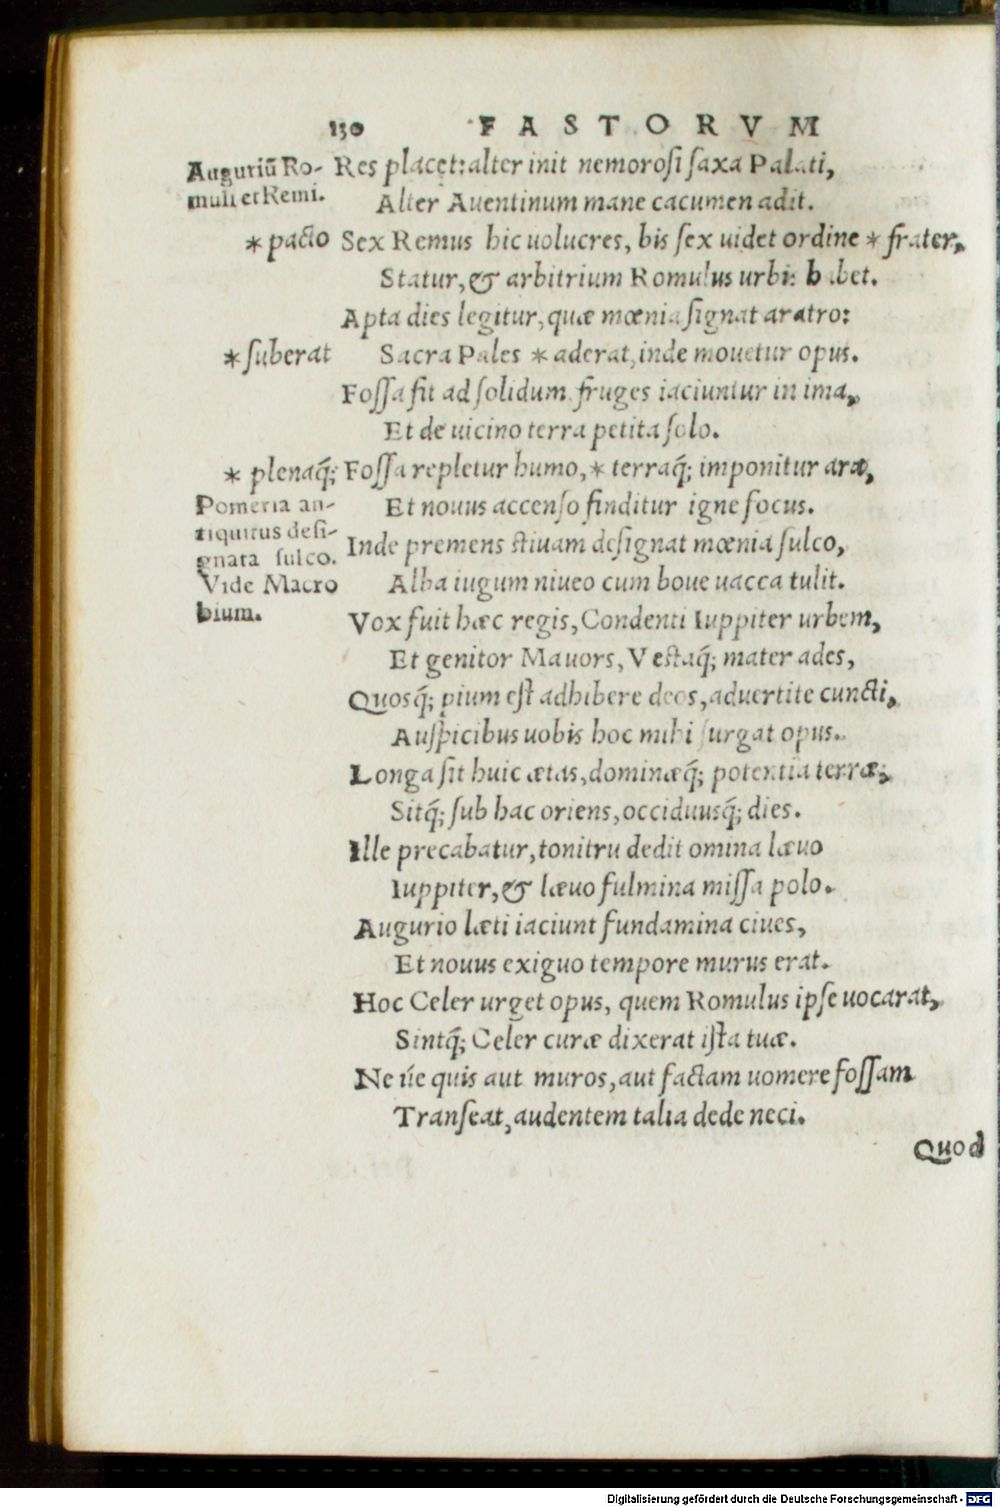 130 FASTORVM
Auguriũ Ro-
muli et Remi.
Res placet: alter init nemorosi saxa Palati,
Alter Auentinum mane cacumen adit.
* pacto
Sex Remus hic uolucres, bis sex uidet ordine * frater,
Statur, & arbitrium Romulus urbis habet.
Apta dies legitur, quæ mœnia signat aratro:
* suberat
Sacra Pales * aderat, inde mouetur opus.
Fossa fit ad solidum. fruges iaciuntur in ima,
Et de uicino terra petita solo.
* plenaq̃;
Fossa repletur humo, * terraq̃; imponitur aræ,
Pomeria an-
tiquitus desi-
gnata sulco.
Vide Macro
bium.
Et nouus accenso finditur igne focus.
Inde premens stiuam designat mœnia sulco,
Alba iugum niueo cum boue uacca tulit.
Vox fuit hæc regis, Condenti Iuppiter urbem,
Et genitor Mauors, Vestaq̃; mater ades,
Quosq̃; pium est adhibere deos, aduertite cuncti,
Auspicibus uobis hoc mihi surgat opus.
Longa sit huic ætas, dominæq̃; potentia terræ,
Sitq̃; sub hac oriens, occiduusq̃; dies.
Ille precabatur, tonitru dedit omina læuo
Iuppiter, & læuo fulmina missa polo.
Augurio læti iaciunt fundamina ciues,
Et nouus exiguo tempore murus erat.
Hoc Celer urget opus, quem Romulus ipse uocarat,
Sintq̃; Celer curæ dixerat ista tuæ.
Ne ũe quis aut muros, aut factam uomere fossam
Transeat, audentem talia dede neci.
Quod
Digitalisierung gefördert durch die Deutsche Forschungsgemeinschaft - DFG